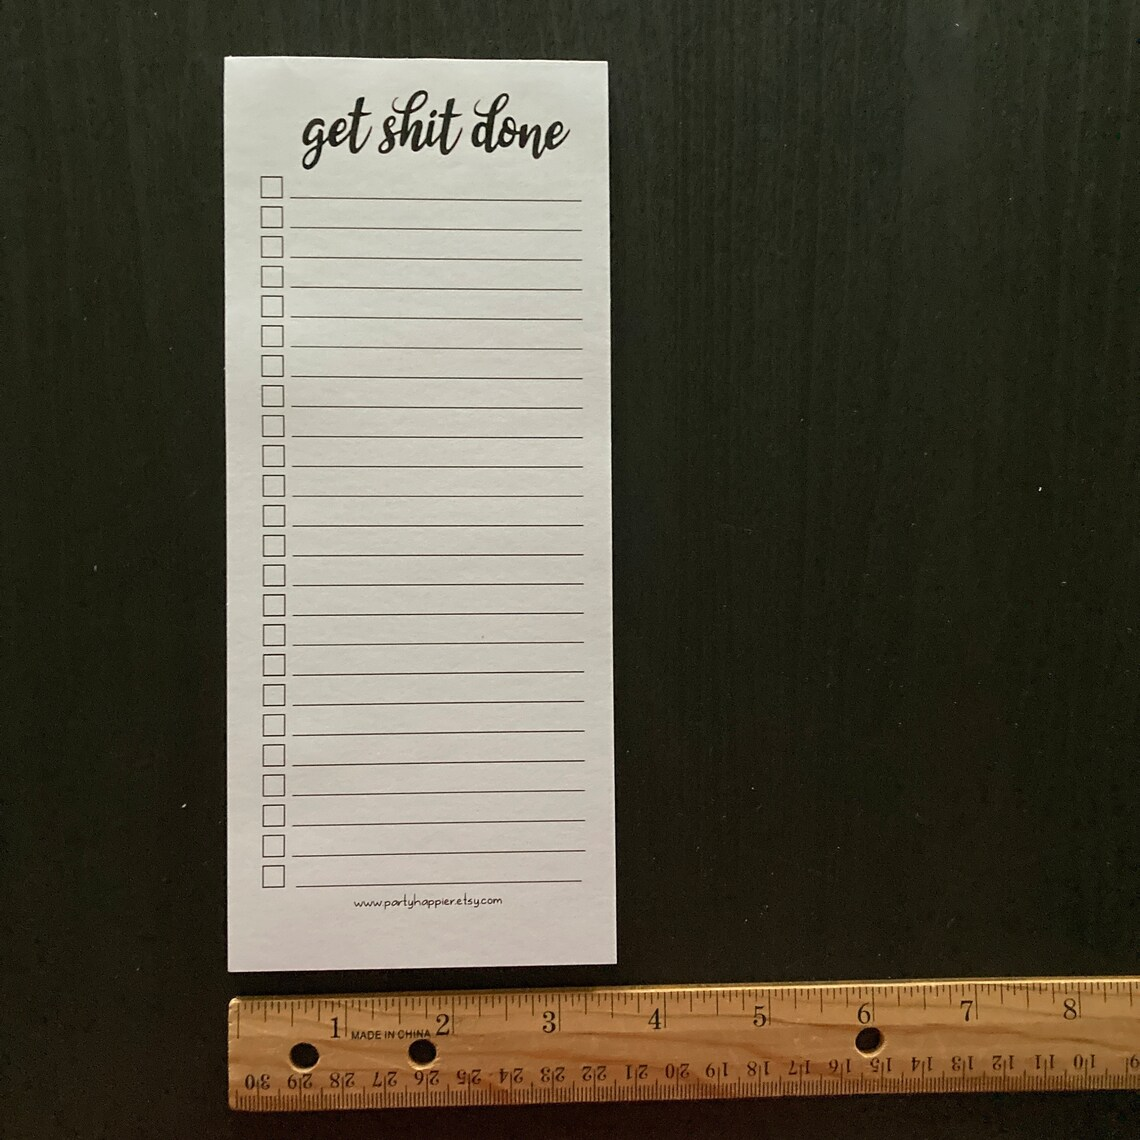 get shit done
www.partyhappier.etsy.com
1 2 3 4 5 6 7 8
MADE IN CHINA
30 29 28 27 26 25 24 23 22 21 20 19 18 17 16 15 14 13 12 11 10 9